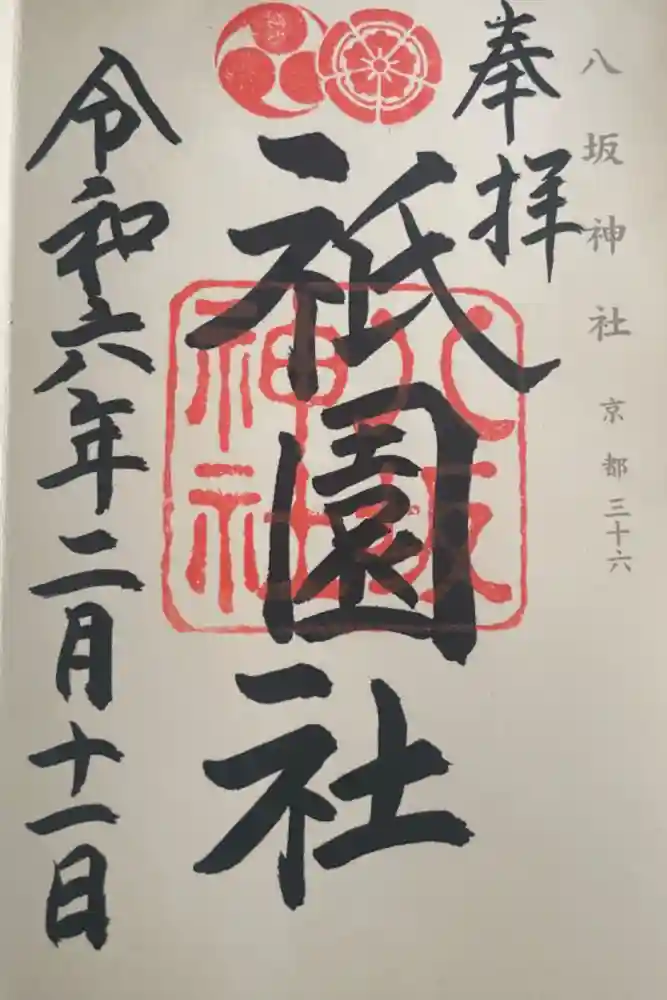 八坂神社 京都三十六
奉拝
祇園社
八坂
神社
令和六年二月十一日